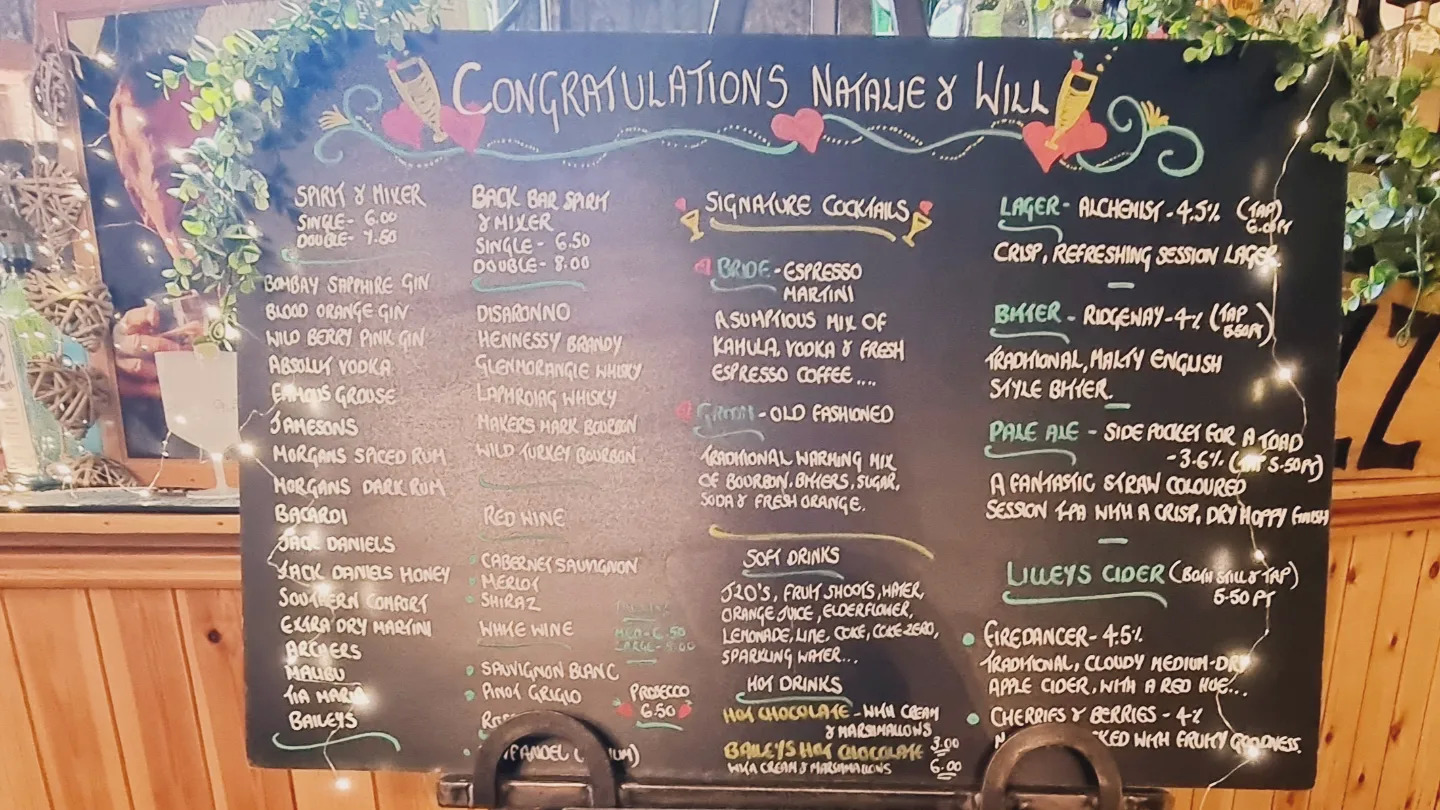 CONGRATULATIONS NATALIE & WILL
SPIRIT & MIXER
SINGLE - 6.00
DOUBLE - 7.50
BOMBAY SAPPHIRE GIN
BLOOD ORANGE GIN
WILD BERRY PINK GIN
ABSOLUT VODKA
FAMOUS GROUSE
JAMESONS
MORGANS SPICED RUM
MORGANS DARK RUM
BACARDI
JACK DANIELS
JACK DANIELS HONEY
SOUTHERN COMFORT
EXTRA DRY MARTINI
ARCHERS
MALIBU
TIA MARIA
BAILEYS
BACK BAR SPIRIT
& MIXER
SINGLE - 6.50
DOUBLE - 8.00
DISARONNO
HENNESSY BRANDY
GLENMORANGIE WHISKY
LAPHROIAG WHISKY
MAKERS MARK BOURBON
WILD TURKEY BOURBON
RED WINE
CABERNET SAUVIGNON
MERLOT
SHIRAZ
WHITE WINE
SAUVIGNON BLANC
PINOT GRIGIO
PROSECCO
6.50
SIGNATURE COCKTAILS
BRIDE - ESPRESSO
MARTINI
A SUMPTIOUS MIX OF
KAHULA, VODKA & FRESH
ESPRESSO COFFEE....
GROOM - OLD FASHIONED
TRADITIONAL WARMING MIX
OF BOURBON, BITTERS, SUGAR,
SODA & FRESH ORANGE.
SOFT DRINKS
J2O'S, FRUIT SHOOTS, WATER,
ORANGE JUICE, ELDERFLOWER,
LEMONADE, LIME, COKE, COKE-ZERO,
SPARKLING WATER...
HOT DRINKS
HOT CHOCOLATE - WITH CREAM
& MARSHMALLOWS
3.00
BAILEYS HOT CHOCOLATE
WITH CREAM & MARSHMALLOWS 6.00
LAGER - ALCHEMIST - 4.5% (TAP)
6.00PT
CRISP, REFRESHING SESSION LAGER
BITTER - RIDGEWAY - 4% (TAP
TRADITIONAL, MALTY ENGLISH
STYLE BITTER.
PALE ALE - SIDE POCKET FOR A TOAD
- 3.6% (TAP 5-50PT)
A FANTASTIC STRAW COLOURED
SESSION IPA WITH A CRISP, DRY HOPPY FINISH
LILLEYS CIDER (BOTH STILL & TAP)
5-50 PT
FIREDANCER - 4.5%
TRADITIONAL, CLOUDY MEDIUM-DRY
APPLE CIDER, WITH A RED HUE...
CHERRIES & BERRIES - 4%
WITH FRUITY GOODNESS.